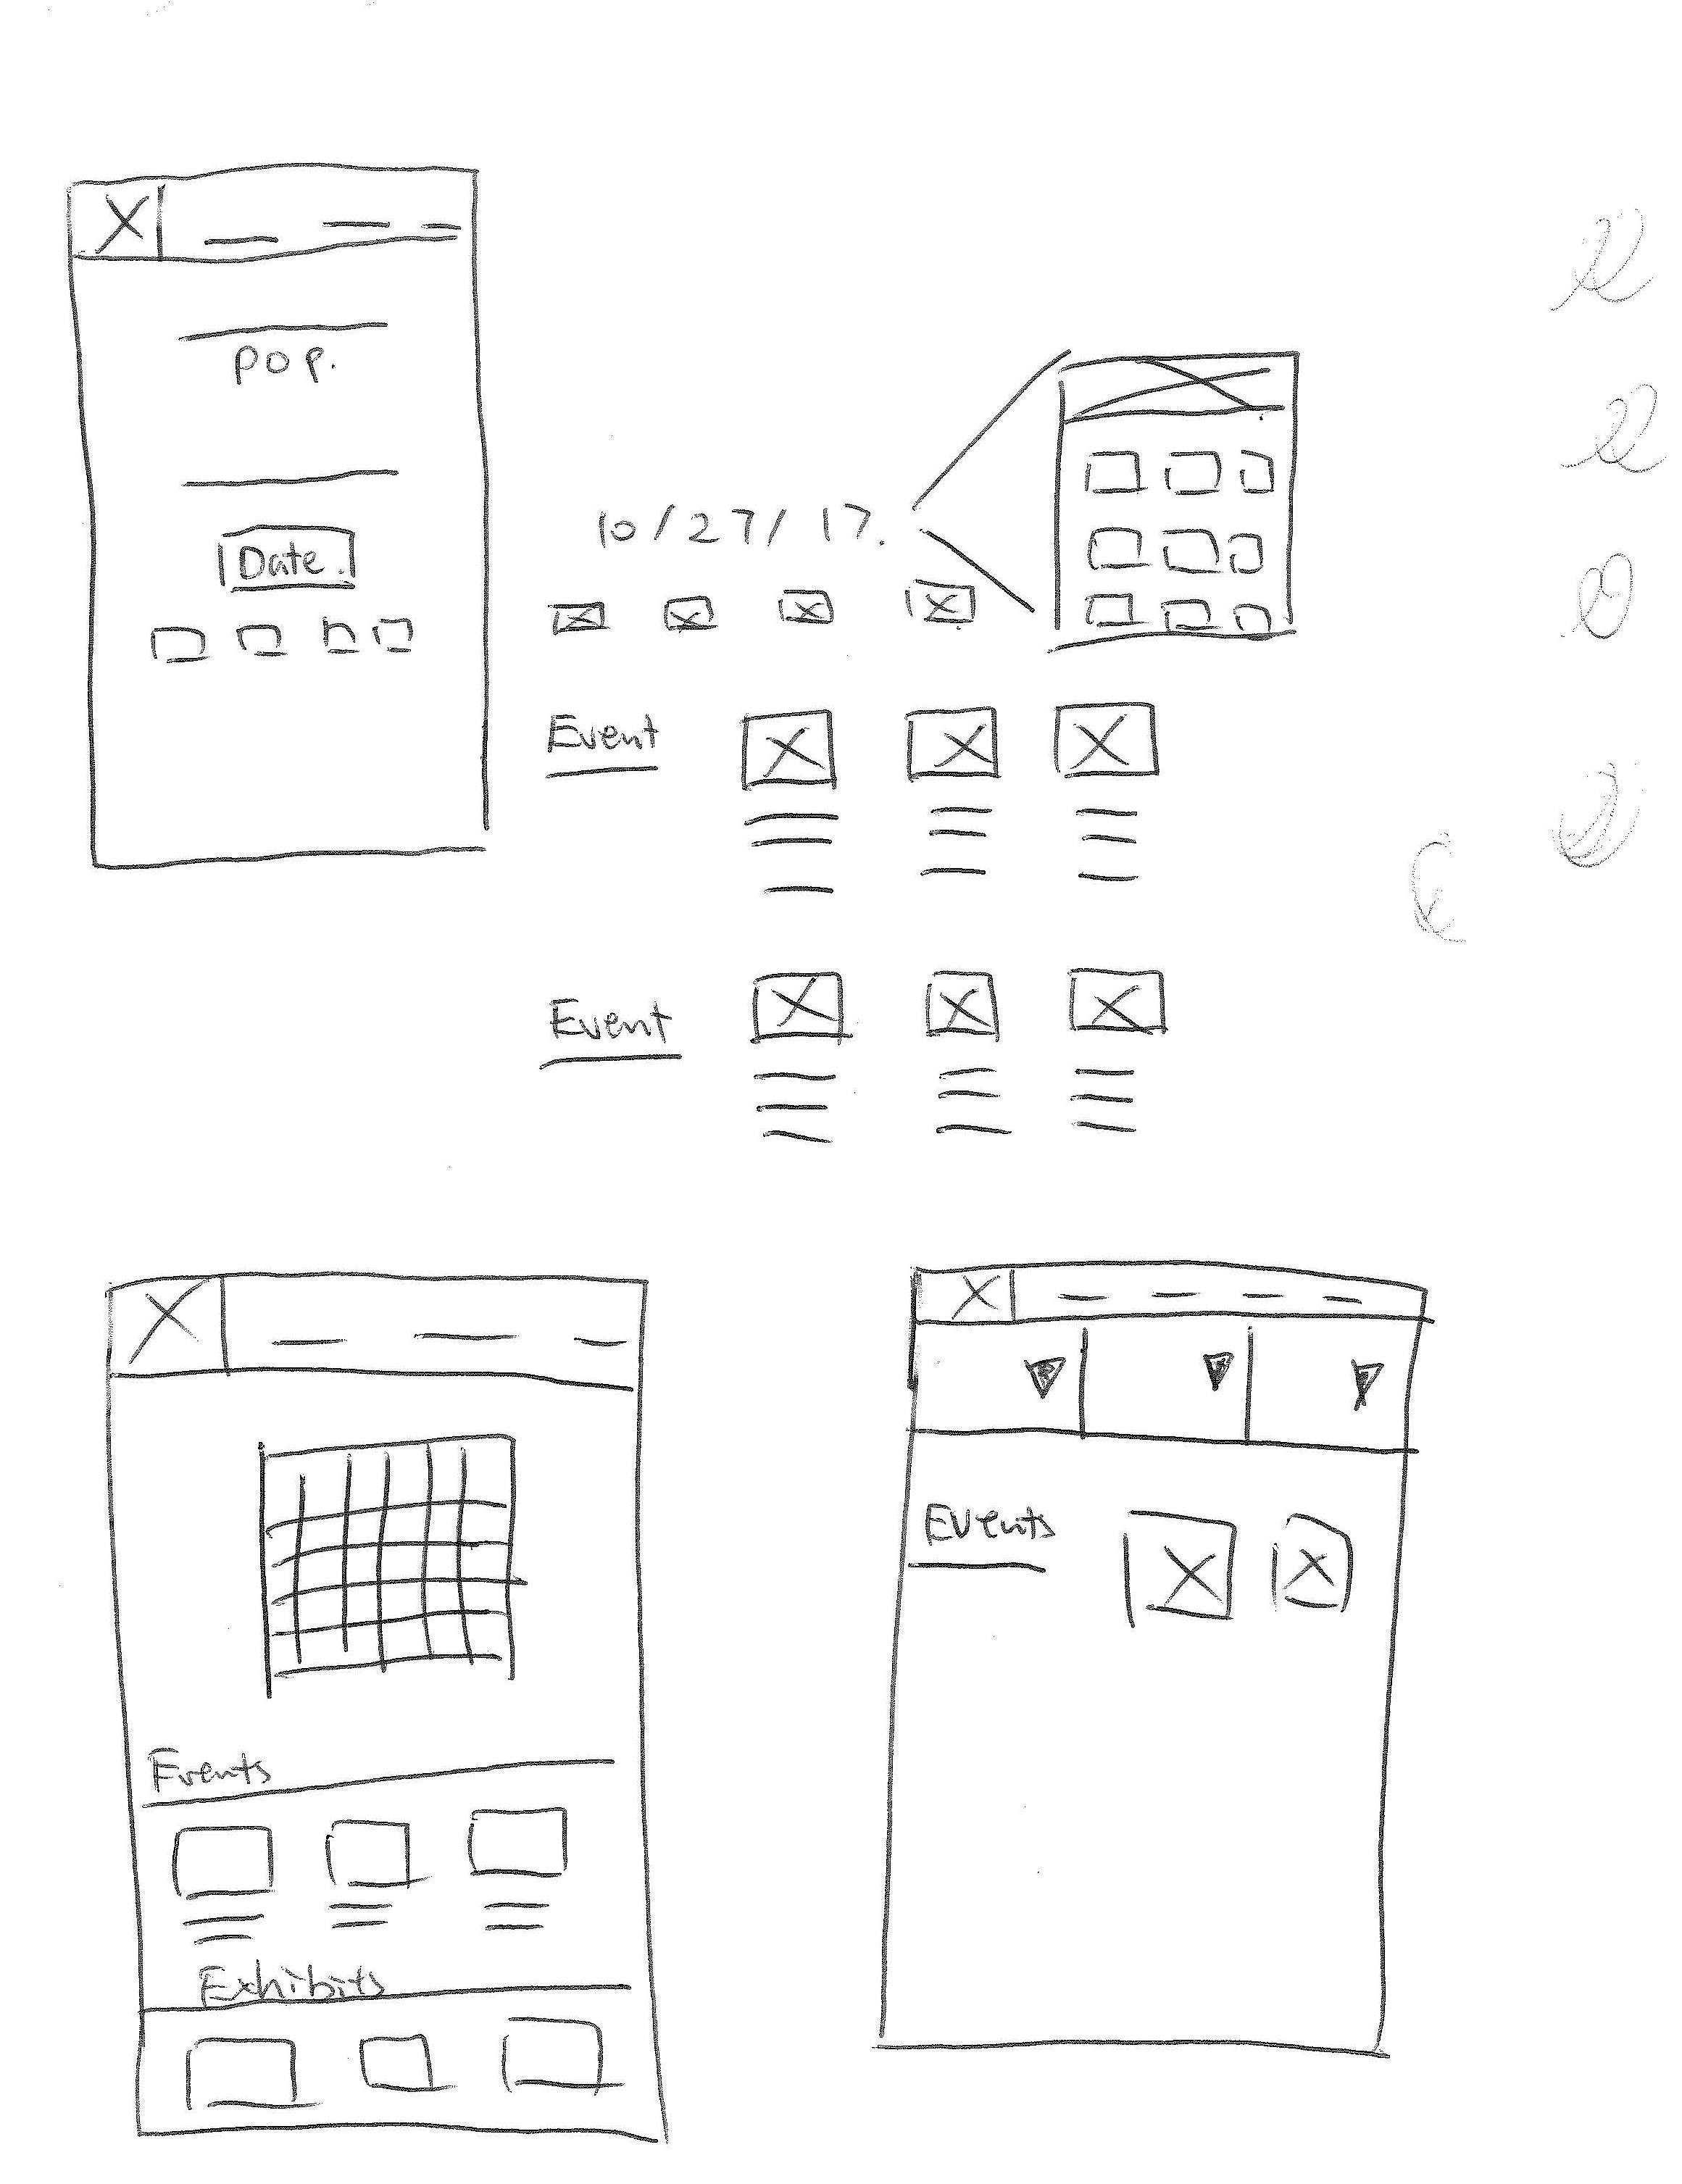 pop.
Date.
10/27/17.
Event
Event
Events
Exhibits
Events